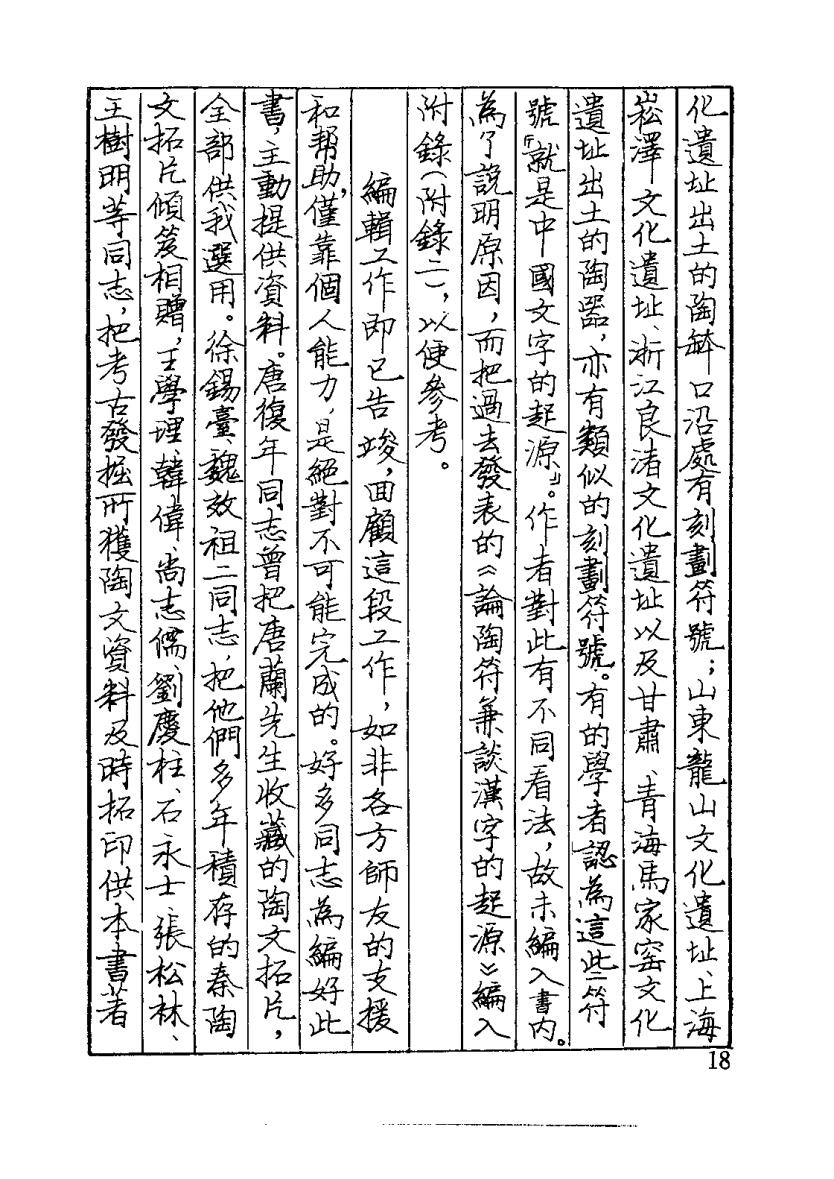 化遺址出土的陶缽口沿處有刻劃符號；山東龍山文化遺址、上海
崧澤文化遺址、浙江良渚文化遺址以及甘肅、青海馬家窑文化
遺址出土的陶器，亦有類似的刻劃符號。有的學者認為這些符
號「就是中國文字的起源」。作者對此有不同看法，故未編入書内。
為了說明原因，而把過去發表的《論陶符兼談漢字的起源》編入
附錄（附錄二），以便參考。
編輯工作即已告竣，回顧這段工作，如非各方師友的支援
和帮助，僅靠個人能力，是絕對不可能完成的。好多同志為編好此
書，主動提供資料。唐復年同志曾把唐蘭先生收藏的陶文拓片，
全部供我選用。徐錫臺、魏效祖二同志，把他們多年積存的秦陶
文拓片傾笈相贈，王學理、韓偉、尚志儒、劉慶柱、石永士、張松林、
王樹明等同志，把考古發掘所獲陶文資料及時拓印供本書著
18